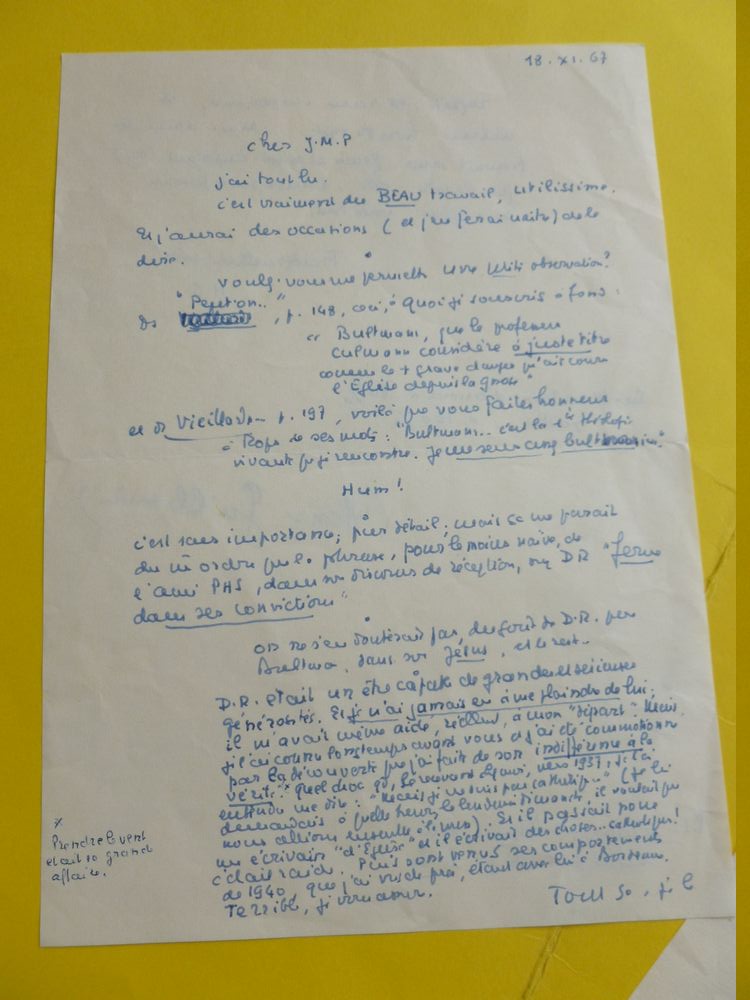 18. XI. 67
cher J.M.P
j'ai tout lu.
c'est vraiment du BEAU travail, utilissime.
Et j'aurai des occasions ( et j'en ferai naître) de le
dire.
Voulez-vous me permettre une petite observation?
Ds "Petit on.. ", p. 148, ceci, à quoi je souscris à fond :
" Bultmann, que le professeur
Culmann considère à juste titre
comme le + grave danger qu'ait couru
l'Eglise depuis la gnose "
et ds Vieillards p. 197, voilà que vous faites honneur
à Rops de ses mots : "Bultmann.. c'est la 1ère théologie
vivante que je rencontre. Je me sens
Hum!
c'est sans importance; pur détail; mais ça me paraît
du m ordre que la phrase, pour le moins naïve, de
l'ami PHS, dans son discours de réception, sur D R "ferme
dans ses convictions"
on ne s'en douterait pas, du goût de D.R. pour
Bultmann, dans son Jésus, et le reste..
D.R. était un être capable de grandes et sérieuses
générosités. Et je n'ai jamais eu à me plaindre de lui;
il m'avait même aidé, réellement, à mon "départ". Mais
je l'ai connu longtemps avant vous et j'ai été commotionné
par la découverte que j'ai faite de son indifférence à la
vérité.x Quel choc qd, vers 1937, je l'ai
entendu me dire : "Mais je ne suis pas catholique" (Je lui
demandais à quelle heure, le lendemain dimanche, il voulait que
nous allions ensemble à la messe). Et il passait pour
un écrivain "d'Eglise" et il écrivait des choses.. catholiques!
c'était raide. Puis sont venus ses comportements
de 1940, que j'ai vus de près, étant avec lui à Bordeaux.
Terrible,
x
Prendre le vent
était sa grande
affaire.